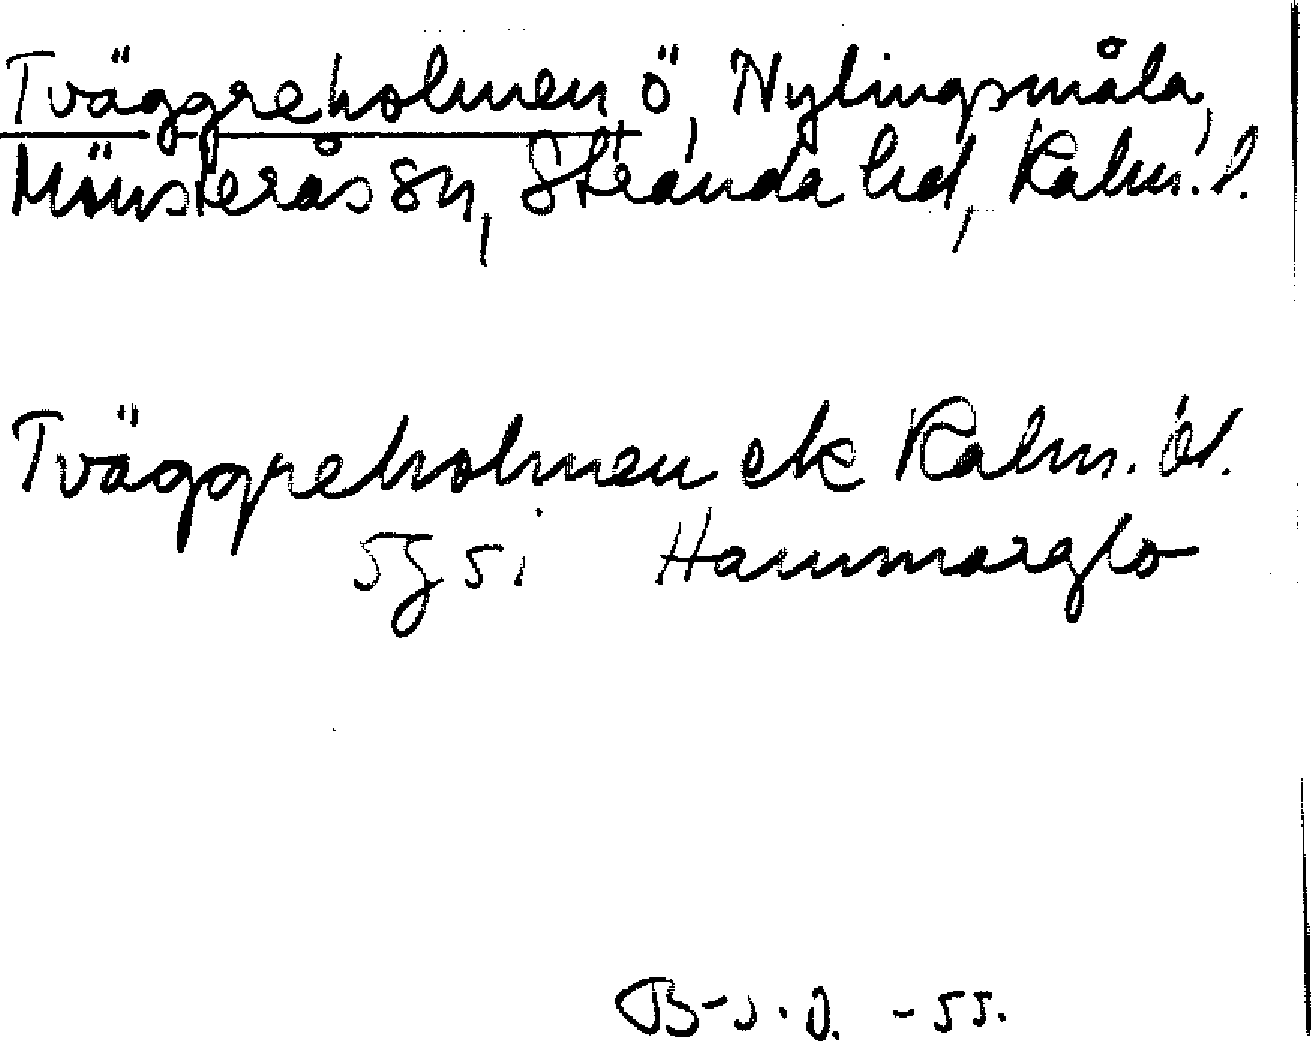 Tväggreholmen, ö, Nylingsmåla,
Mönsterås sn, Stranda hd, Kalm. l.
Tväggreholmen ek Kalm. öl.
5g5i Hammarglo
B-s.O. -55.